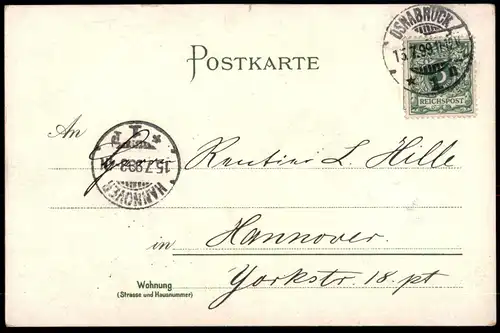 POSTKARTE
OSNABRÜCK
15.7.99.11-12V.
* 1 n
5
REICHSPOST
An
Rentier L. Hille
HANNOVER
15.7.99
* 1
in Hannover.
Yorkstr. 18. pt
Wohnung
(Strasse und Hausnummer)